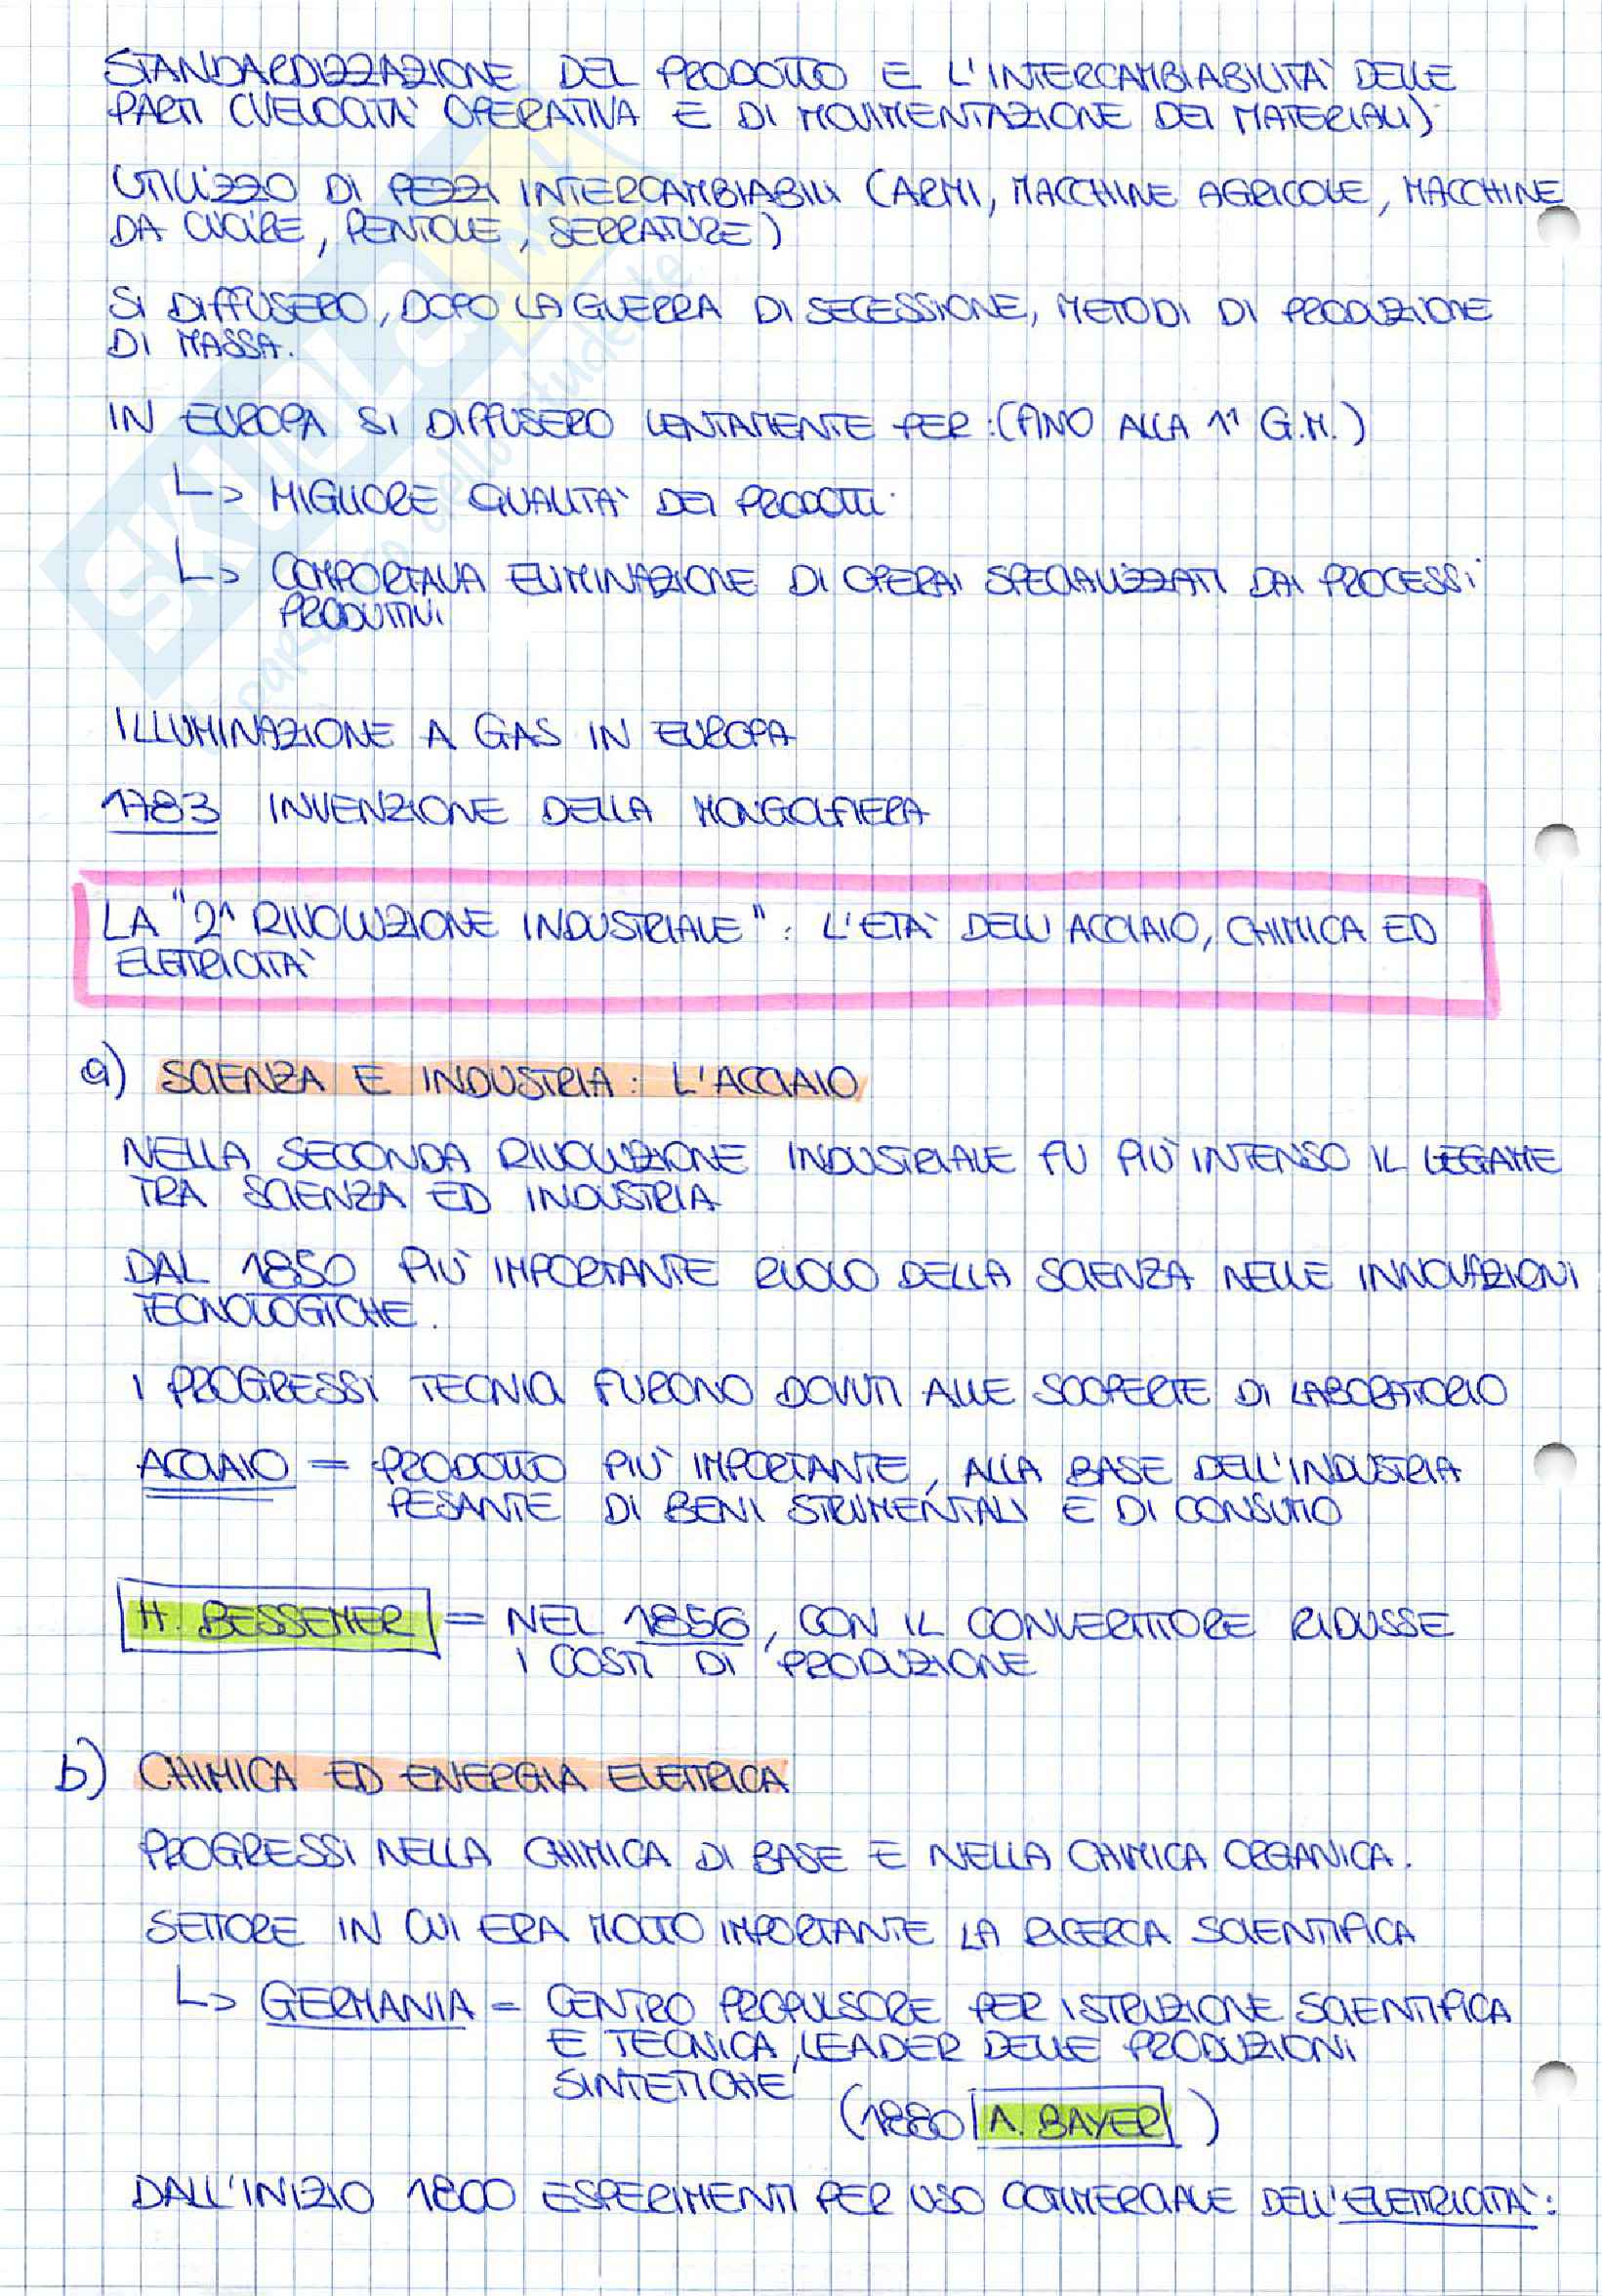 STANDARDIZZAZIONE DEL PRODOTTO E L'INTERCAMBIABILITA' DELLE
PARTI (VELOCITA' OPERATIVA E DI MOVIMENTAZIONE DEI MATERIALI)
UTILIZZO DI PEZZI INTERCAMBIABILI (ARMI, MACCHINE AGRICOLE, MACCHINE
DA CUCIRE, PENTOLE, SERRATURE)
SI DIFFUSERO, DOPO LA GUERRA DI SECESSIONE, METODI DI PRODUZIONE
DI MASSA.
IN EUROPA SI DIFFUSERO LENTAMENTE PER: (FINO ALLA 1^ G.M.)
↳ MIGLIORE QUALITA' DEI PRODOTTI
↳ COMPORTAVA ELIMINAZIONE DI OPERAI SPECIALIZZATI DAI PROCESSI
PRODUTTIVI
ILLUMINAZIONE A GAS IN EUROPA
1783 INVENZIONE DELLA MONGOLFIERA
LA "2^ RIVOLUZIONE INDUSTRIALE": L'ETA' DELL'ACCIAIO, CHIMICA ED
ELETTRICITA'
a) SCIENZA E INDUSTRIA: L'ACCIAIO
NELLA SECONDA RIVOLUZIONE INDUSTRIALE FU PIU' INTENSO IL LEGAME
TRA SCIENZA ED INDUSTRIA
DAL 1850 PIU' IMPORTANTE RUOLO DELLA SCIENZA NELLE INNOVAZIONI
TECNOLOGICHE.
I PROGRESSI TECNICI FURONO DOVUTI ALLE SCOPERTE DI LABORATORIO
ACCIAIO = PRODOTTO PIU' IMPORTANTE, ALLA BASE DELL'INDUSTRIA
PESANTE DI BENI STRUMENTALI E DI CONSUMO
H. BESSEMER = NEL 1856, CON IL CONVERTITORE RIDUSSE
I COSTI DI PRODUZIONE
b) CHIMICA ED ENERGIA ELETTRICA
PROGRESSI NELLA CHIMICA DI BASE E NELLA CHIMICA ORGANICA.
SETTORE IN CUI ERA MOLTO IMPORTANTE LA RICERCA SCIENTIFICA
↳ GERMANIA = CENTRO PROPULSORE PER ISTRUZIONE SCIENTIFICA
E TECNICA, LEADER DELLE PRODUZIONI
SINTETICHE
(1880 A. BAYER)
DALL'INIZIO 1800 ESPERIMENTI PER USO COMMERCIALE DELL'ELETTRICITA':